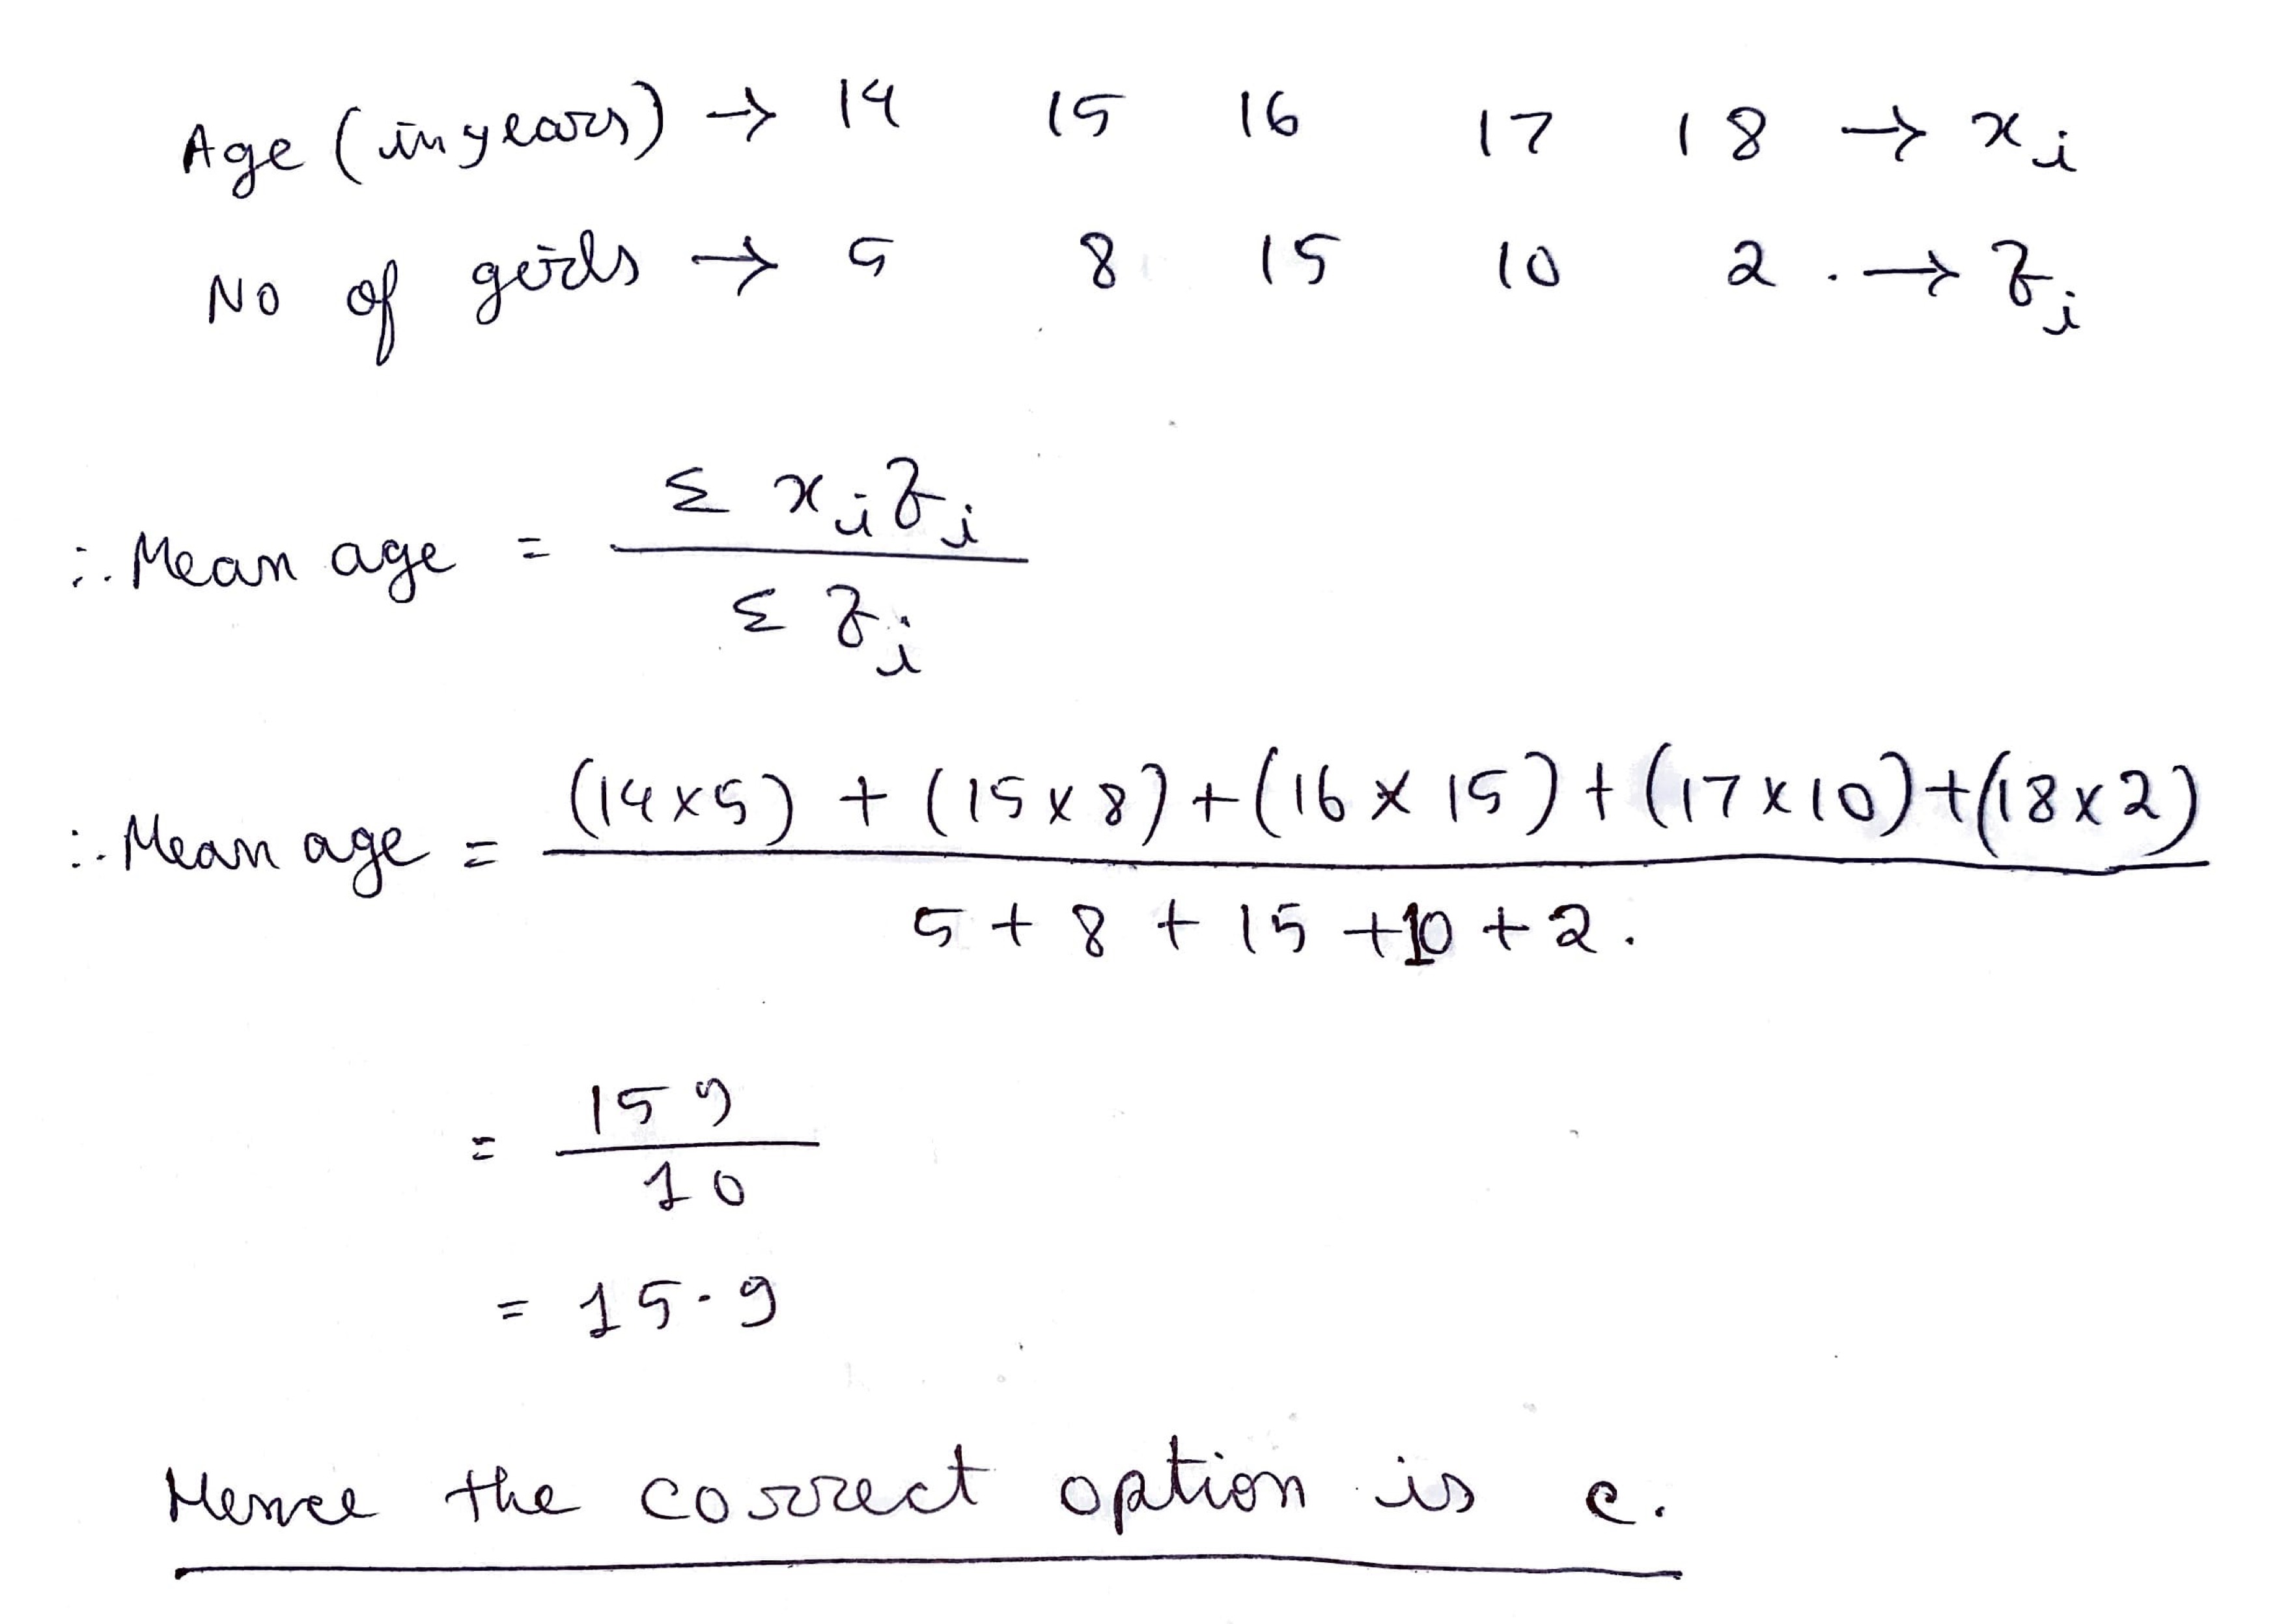 Age (in years) → 14 15 16 17 18 → xi
No of girls → 5 8 15 10 2 . → fi
∴ Mean age = Σ xi fi / Σ fi
∴ Mean age = (14×5) + (15×8) + (16×15) + (17×10) + (18×2) / 5 + 8 + 15 + 10 + 2 .
= 159 / 10
= 15.9
Hence the correct option is c.